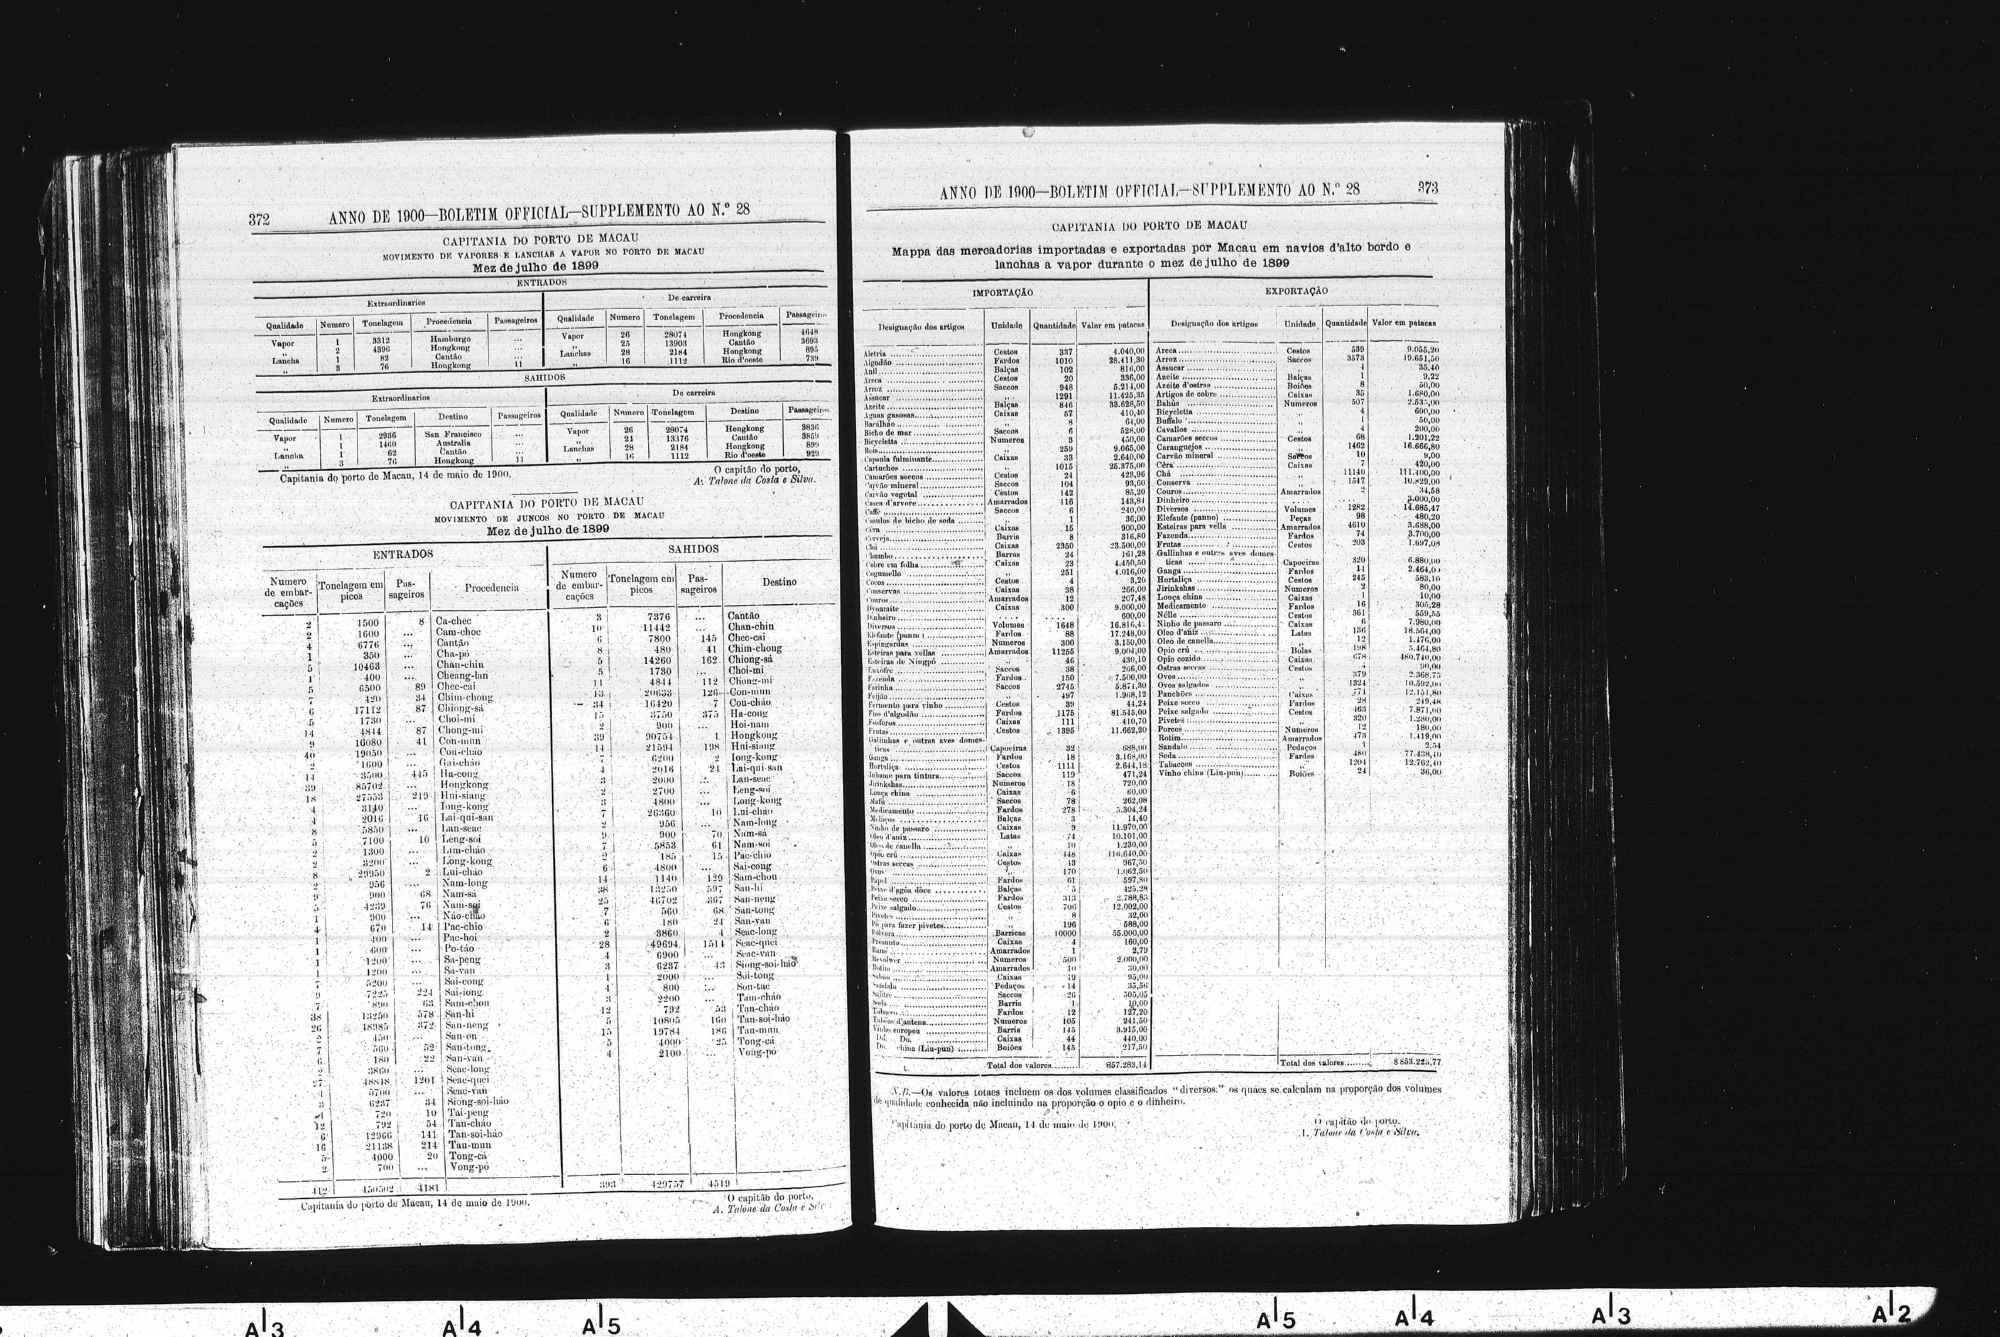 372 ANNO DE 1900—BOLETIM OFFICIAL—SUPPLEMENTO AO N.º 28
CAPITANIA DO PORTO DE MACAU
MOVIMENTO DE VAPORES E LANCHAS A VAPOR NO PORTO DE MACAU
Mez de julho de 1899
ENTRADOS
Extraordinarios De carreira
Qualidade Numero Tonelagem Procedencia Passageiros Qualidade Numero Tonelagem Procedencia Passageiros
Vapor 1 3312 Hamburgo ... Vapor 26 28074 Hongkong 4648
„ 2 4396 Hongkong ... „ 25 13903 Cantão 3693
Lancha 1 82 Cantão ... Lanchas 28 2184 Hongkong 895
„ 3 76 Hongkong 11 „ 16 1112 Rio d'oeste 739
SAHIDOS
Extraordinarios De carreira
Qualidade Numero Tonelagem Destino Passageiros Qualidade Numero Tonelagem Destino Passageiros
Vapor 1 2936 San Francisco ... Vapor 26 28074 Hongkong 3836
„ 1 1460 Australia ... „ 24 13376 Cantão 3859
Lancha 1 62 Cantão ... Lanchas 28 2184 Hongkong 899
„ 3 76 Hongkong 11 „ 16 1112 Rio d'oeste 929
Capitania do porto de Macau, 14 de maio de 1900.
O capitão do porto,
A. Talone da Costa e Silva.
CAPITANIA DO PORTO DE MACAU
MOVIMENTO DE JUNCOS NO PORTO DE MACAU
Mez de julho de 1899
ENTRADOS SAHIDOS
Numero de embarcações Tonelagem em picos Passageiros Procedencia Numero de embarcações Tonelagem em picos Passageiros Destino
2 1500 8 Ca-chec 3 7376 ... Cantão
2 1600 ... Cam-choc 10 11442 ... Chan-chin
4 6776 ... Cantão 6 7800 145 Chec-cai
1 350 ... Cha-pó 8 480 41 Chim-chong
5 10463 ... Chan-chin 5 14260 162 Chiong-sá
1 400 ... Cheang-lan 5 1730 ... Choi-mi
5 6500 89 Chec-cai 11 4844 112 Chong-mi
7 420 34 Chim-chong 13 20633 126 Con-mun
6 17112 87 Chiong-sá 34 16420 7 Cou-cháo
5 1730 ... Choi-mi 15 3750 375 Ha-cong
14 4844 87 Chong-mi 2 900 ... Hoi-nam
9 16080 41 Con-mun 39 90754 1 Hongkong
40 19050 ... Cou-cháo 14 21594 198 Hui-siang
2 1600 ... Gai-cháo 6200 2 Iong-kong
14 3500 445 Ha-cong 4 2016 24 Lai-qui-san
39 85702 ... Hongkong 3 2000 ... Lan-seac
18 27553 219 Hui-siang 2 2700 ... Leng-soi
4 3140 ... Iong-kong 3 4800 ... Long-kong
4 2016 16 Lai-qui-san 7 26360 10 Lui-cháo
8 5850 ... Lan-seac 2 956 ... Nam-long
5 7100 10 Leng-soi 9 900 70 Nam-sá
2 1300 ... Lim-cháo 7 5853 61 Nam-soi
2 3200 ... Long-kong 2 185 15 Pac-chio
8 29950 2 Lui-cháo 6 4800 ... Sai-cong
2 956 ... Nam-long 14 1140 129 Sam-chou
9 900 68 Nam-sá 38 13250 597 San-hi
5 4239 76 Nam-soi 25 46702 367 San-neng
1 900 ... Náo-cháo 7 560 68 San-tong
4 670 14 Pac-chio 6 180 24 San-van
1 400 ... Pac-hoi 2 3860 4 Seac-long
1 600 ... Po-táo 28 49694 1514 Seac-quei
1 1200 ... Sa-peng 4 6900 ... Seac-van
1 1200 ... Sa-van 3 6237 43 Siong-soi-háo
7 5200 ... Sai-cong 1 2000 ... Soi-tong
9 7225 224 Sai-iong 4 800 ... Son-tac
7 890 63 Sam-chou 3 2200 ... Tam-cháo
38 13250 578 San-hi 12 792 53 Tan-cháo
26 48985 372 San-neng 5 10805 160 Tan-soi-háo
450 ... San-on 15 19784 186 Tau-mun
7 560 52 San-tong 5 4000 25 Tong-cá
6 180 22 San-van 4 2100 ... Vong-pó
2 3860 ... Seac-long
48848 1201 Seac-quei
4 5700 ... Seac-van
3 6237 34 Siong-soi-háo
720 10 Tai-peng
12 792 54 Tan-cháo
6 12966 141 Tan-soi-háo
16 21138 214 Tau-mun
5 4000 20 Tong-cá
2 700 ... Vong-pó
412 450502 4181 393 429757 4519
Capitania do porto de Macau, 14 de maio de 1900.
O capitão do porto,
A. Talone da Costa e
ANNO DE 1900—BOLETIM OFFICIAL—SUPPLEMENTO AO N.º 28 373
CAPITANIA DO PORTO DE MACAU
Mappa das mercadorias importadas e exportadas por Macau em navios d'alto bordo e
lanchas a vapor durante o mez de julho de 1899
IMPORTAÇÃO EXPORTAÇÃO
Designação dos artigos Unidade Quantidade Valor em patacas Designação dos artigos Unidade Quantidade Valor em patacas
Aletria Cestos 337 4.040,00
Algodão Fardos 1010 28.411,30
Anil Balças 102 816,00
Areca Cestos 20 336,00
Arroz Saccos 948 5.214,00
Assucar „ 1291 11.425,35
Azeite Balças 846 33.628,50
Aguas gasosas Caixas 57 410,40
Bacalhão „ 8 64,00
Bicho de mar Saccos 6 528,00
Bicycletta Numeros 3 450,00
Bois „ 259 9.065,00
Capsula fulminante Caixas 33 2.640,00
Cartuchos „ 1015 25.375,00
Camarões seccos Cestos 24 423,96
Carvão mineral Saccos 104 93,60
Carvão vegetal Cestos 142 85,20
Casca d'arvore Amarrados 116 143,84
Caffé Saccos 6 240,00
Casulos de bicho de seda „ 1 36,00
Cêra Caixas 15 900,00
Cerveja Barris 8 316,80
Chá Caixas 2350 23.500,00
Chumbo Barras 24 161,28
Cobre em folha Caixas 23 4.450,50
Cogumello „ 251 4.016,00
Cocos Cestos 4 3,20
Conservas Caixas 38 266,00
Couros Amarrados 12 207,48
Dynamite Caixas 300 9.000,00
Dinheiro 600,00
Diversos Volumes 1648 16.816,4
Elefante (panno) Fardos 88 17.248,00
Espingardas Numeros 300 3.150,00
Esteiras para vellas Amarrados 11255 9.004,00
Esteiras de Ningpó „ 46 430,10
Enxofre Saccos 38 266,00
Fazenda Fardos 150 7.500,00
Farinha Saccos 2745 5.871,30
Feijão „ 497 1.968,12
Fermento para vinho Cestos 39 44,24
Fios d'algodão Fardos 1175 81.545,00
Fosforos Caixas 111 410,70
Frutas Cestos 1395 11.662,20
Gallinhas e outras aves domes-
ticas Capoeiras 32 688,00
Ganga Fardos 18 3.168,00
Hortaliça Cestos 1111 2.644,18
Inhame para tintura Saccos 119 471,24
Jirinkshas Numeros 18 720,00
Louça china Caixas 6 60,00
Mafú Saccos 78 262,08
Medicamento Fardos 278 5.304,24
Meliços Balças 3 14,40
Ninho de passaro Caixas 9 11.970,00
Oleo d'aniz Latas 74 10.101,00
Oleo de canella „ 10 1.230,00
Opio crú Caixas 148 116.640,00
Ostras seccas Cestos 43 967,50
Ovos „ 170 1.062,50
Papel Fardos 61 597,80
Peixe d'agoa dôce Balças 5 425,28
Peixe secco Fardos 313 2.788,83
Peixe salgado Cestos 706 12.002,00
Pivetes „ 8 32,00
Pó para fazer pivetes „ 196 588,00
Polvora Barricas 10000 55.000,00
Presunto Caixas 4 160,00
Ramé Amarrados 1 2,79
Revolver Numeros 500 2.000,00
Rotim Amarrados 10 30,00
Sabão Caixas 19 95,00
Sandalo Pedaços 14 35,56
Salitre Saccos 26 505,05
Soda Barris 1 10,00
Tabaco Fardos 12 127,20
Tubos d'antena Numeros 105 241,50
Vinho europeu Barris 145 3.915,00
Do. Do. Caixas 44 440,00
Do. china (Liu-pun) Boiões 145 217,50
Total dos valores 857.283,14
Areca Cestos 539 9.055,20
Arroz Saccos 3573 19.651,50
Assucar „ 4 35,40
Azeite Balças 1 9,22
Azeite d'ostras Boiões 8 50,00
Artigos de cobre Caixas 35 1.680,00
Bahús Numeros 507 2.535,00
Bicycletta „ 4 600,00
Buffalo „ 1 50,00
Cavallos „ 4 200,00
Camarões seccos Cestos 68 1.201,22
Caranguejos „ 1462 16.666,80
Carvão mineral Saccos 10 9,00
Cêra Caixas 7 420,00
Chá „ 11140 111.400,00
Conserva „ 1547 10.829,00
Couros Amarrados 2 34,58
Dinheiro 3.000,00
Diversos Volumes 1282 14.685,47
Elefante (panno) Peças 98 480,20
Esteiras para vella Amarrados 4610 3.688,00
Fazenda Fardos 74 3.700,00
Frutas Cestos 203 1.697,08
Gallinhas e outras aves domes-
ticas Capoeiras 320 6.880,00
Ganga Fardos 14 2.464,00
Hortaliça Cestos 245 583,10
Jirinkshas Numeros 2 80,00
Louça china Caixas 1 10,00
Medicamento Fardos 16 305,28
Nélle Cestos 361 559,55
Ninho de passaro Caixas 6 7.980,00
Oleo d'aniz Latas 136 18.564,00
Oleo de canella „ 12 1.476,00
Opio crú Bolas 198 5.464,80
Opio cozido Caixas 678 480.740,00
Ostras seccas Cestos 4 90,00
Ovos „ 379 2.368,75
Ovos salgados „ 1324 10.592,00
Panchões Caixas 774 12.151,80
Peixe secco Fardos 28 249,48
Peixe salgado Cestos 463 7.871,00
Pivetes „ 320 1.280,00
Porcos Numeros 12 180,00
Rotim Amarrados 473 1.419,00
Sandalo Pedaços 1 2,54
Seda Fardos 480 77.438,40
Tabaccos „ 1204 12.762,40
Vinho china (Liu-pun) Boiões 24 36,00
Total dos valores 8 853.225,77
N.B.—Os valores totaes incluem os dos volumes classificados "diversos," os quaes se calculam na proporção dos volumes
de qualidade conhecida não incluindo na proporção o opio e o dinheiro.
Capitania do porto de Macau, 14 de maio de 1900.
O capitão do porto.
A. Talone da Costa e Silva.
A3 A4 A5 A5 A4 A3 A2